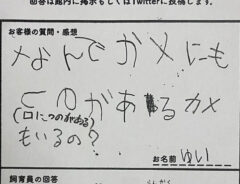 回答は館内に掲示もしくはTwitterに投稿します。
お客様の質問・感想
なんでカメにも
つのがあるカメ
(口につのがある)
もいるの?
お名前 ゆい
飼育員の回答